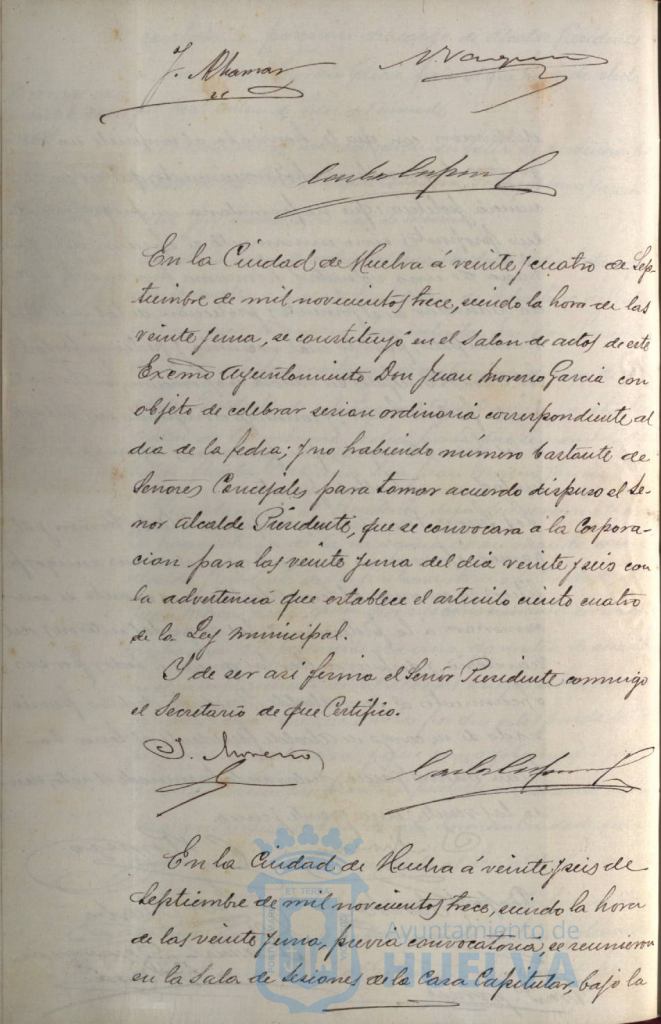 J. Alhamar
En la Ciudad de Huelva á veinte y cuatro de Sep-
tiembre de mil novecientos trece, siendo la hora de las
veinte y una, se constituyó en el Salon de actos de este
Excmo Ayuntamiento Don Juan Moreno Garcia con
objeto de celebrar sesion ordinaria correspondiente al
dia de la fecha; y no habiendo número bastante de
Señores Concejales para tomar acuerdo dispuso el Se-
ñor Alcalde Presidente, que se convocara a la Corpora-
cion para las veinte y una del dia veinte y seis con
la advertencia que establece el articulo ciento cuatro
de la Ley municipal.
Y de ser asi firma el Señor Presidente conmigo
el Secretario de que Certifico.
J. Moreno
En la Ciudad de Huelva á veinte y seis de
Septiembre de mil novecientos trece, siendo la hora
de las veinte y una, previa convocatoria, se reunieron
en la Sala de Sesiones de la Casa Capitular, bajo la
Ayuntamiento de
HUELVA